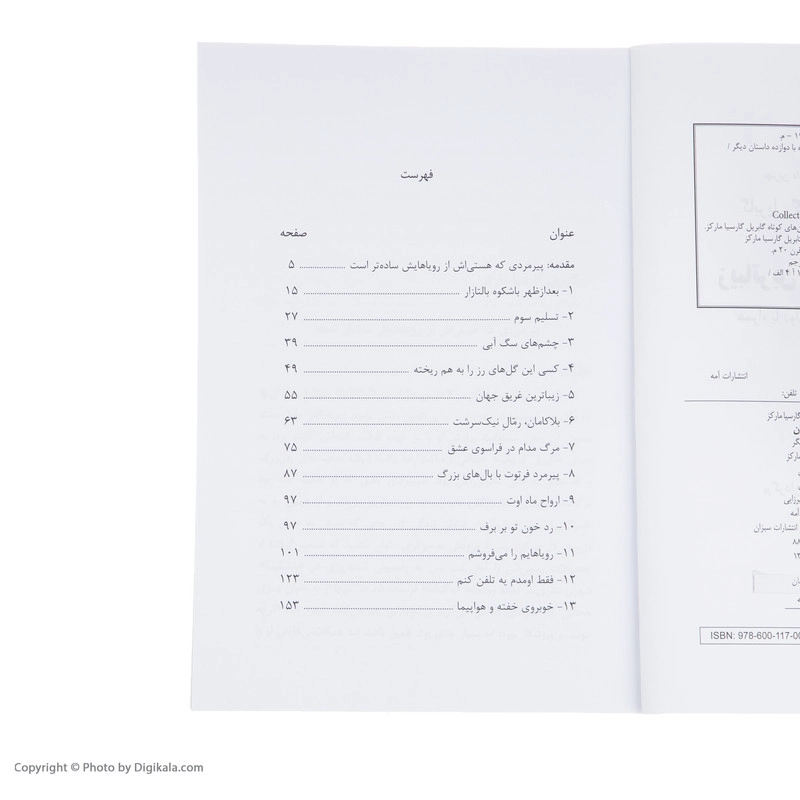 فهرست
عنوان صفحه
مقدمه: پیرمردی که هستی‌اش از رویاهایش ساده‌تر است ۵
۱- بعدازظهر باشکوه بالتازار ۱۵
۲- تسلیم سوم ۲۷
۳- چشم‌های سگ آبی ۳۹
۴- کسی این گل‌های رز را به هم ریخته ۴۹
۵- زیباترین غریق جهان ۵۵
۶- بلاکامان، رمّالِ نیک‌سرشت ۶۳
۷- مرگ مدام در فراسوی عشق ۷۵
۸- پیرمرد فرتوت با بال‌های بزرگ ۸۷
۹- ارواح ماه اوت ۹۷
۱۰- رد خون تو بر برف ۹۷
۱۱- رویاهایم را می‌فروشم ۱۰۱
۱۲- فقط اومدم یه تلفن کنم ۱۲۳
۱۳- خوبروی خفته و هواپیما ۱۵۳
با دوازده داستان دیگر /
Collect
های کوتاه گابریل گارسیا مارکز.
گابریل گارسیا مارکز
قرن ۲۰ م.
انتشارات آمه
تلفن:
گارسیا مارکز
مارکز
انتشارات سبزان
ISBN: 978-600-117-0
Copyright © Photo by Digikala.com